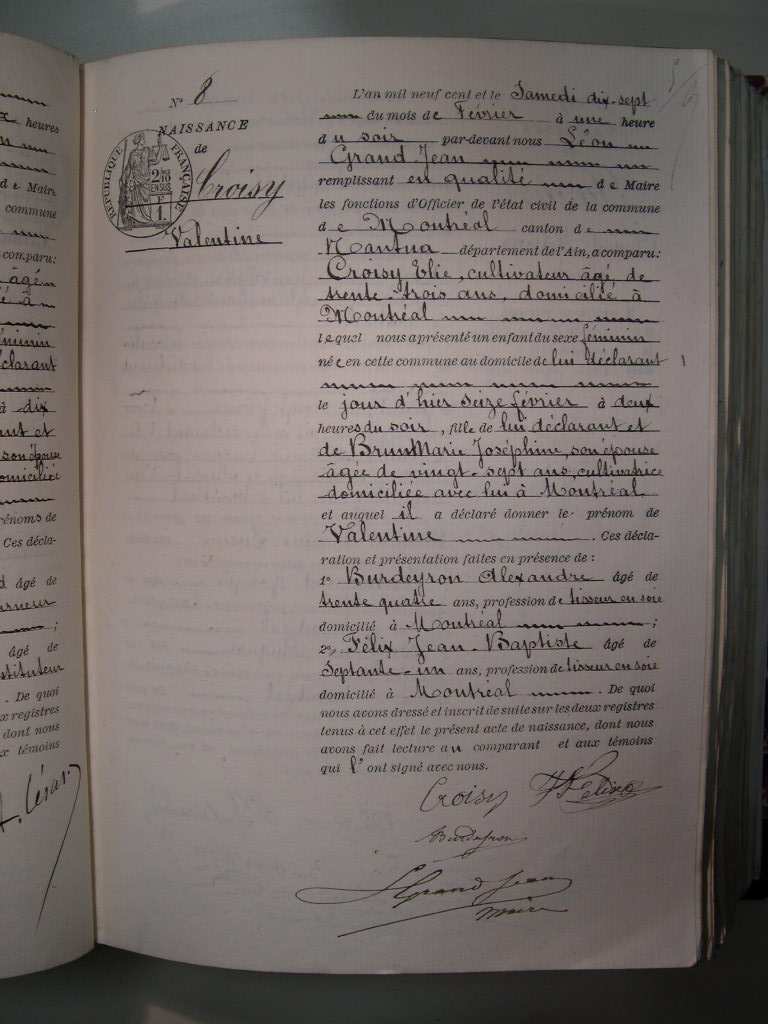 heures
de Maire
commune
comparu:
âgé
féminin
déclarant
à dix
ant et
son épouse
domiciliée
prénoms de
Ces décla-
âgé de
âgé de
stituteur
. De quoi
registres
dont nous
témoins
N° 8
NAISSANCE
de
RÉPUBLIQUE FRANÇAISE
Croisy
Valentine
L'an mil neuf cent et le Samedi dix-sept
du mois de Février à une heure
du soir par-devant nous Léon
Grand Jean
remplissant en qualité de Maire
les fonctions d'Officier de l'état civil de la commune
de Montréal canton de
Nantua département de l'Ain, a comparu:
Croisy Elie, cultivateur âgé de
trente-trois ans, domicilié à
Montréal
lequel nous a présenté un enfant du sexe féminin
née en cette commune au domicile de lui déclarant
le jour d'hier seize février à deux
heures du soir, fille de lui déclarant et
de Brun Marie Joséphine, son épouse
âgée de vingt-sept ans, cultivatrice
domiciliée avec lui à Montréal
et auquel il a déclaré donner le prénom de
Valentine . Ces décla-
ration et présentation faites en présence de :
1° Burdeyron Alexandre âgé de
trente quatre ans, profession de tisseur en soie
domicilié à Montréal ;
2° Félix Jean-Baptiste âgé de
Septante-un ans, profession de tisseur en soie
domicilié à Montréal . De quoi
nous avons dressé et inscrit de suite sur les deux registres
tenus à cet effet le présent acte de naissance, dont nous
avons fait lecture au comparant et aux témoins
qui l' ont signé avec nous.
Croisy
Burdeyron
L Grand Jean
maire